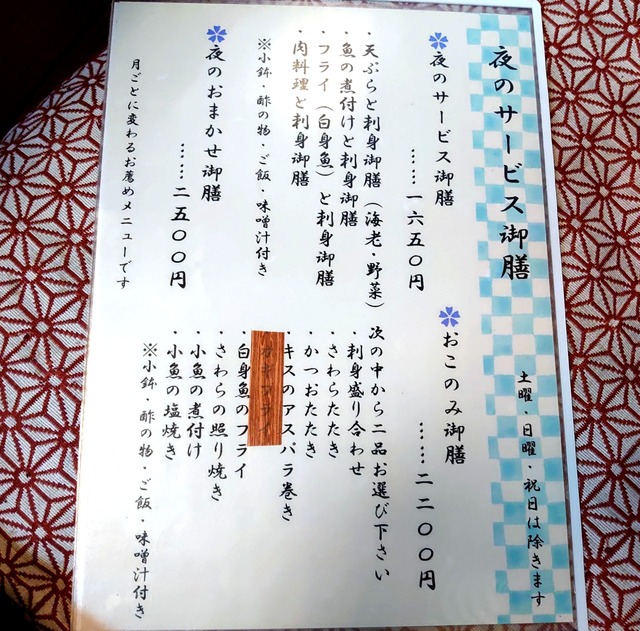 夜のサービス御膳
土曜・日曜・祝日は除きます
夜のサービス御膳
……一六五〇円
・天ぷらと刺身御膳（海老・野菜）
・魚の煮付けと刺身御膳
・フライ（白身魚）と刺身御膳
・肉料理と刺身御膳
※小鉢・酢の物・ご飯・味噌汁付き
夜のおまかせ御膳
……二五〇〇円
月ごとに変わるお薦めメニューです
おこのみ御膳
……二二〇〇円
次の中から二品お選び下さい
・刺身盛り合わせ
・さわらたたき
・かつおたたき
・キスのアスパラ巻き
・白身魚のフライ
・さわらの照り焼き
・小魚の煮付け
・小魚の塩焼き
※小鉢・酢の物・ご飯・味噌汁付き